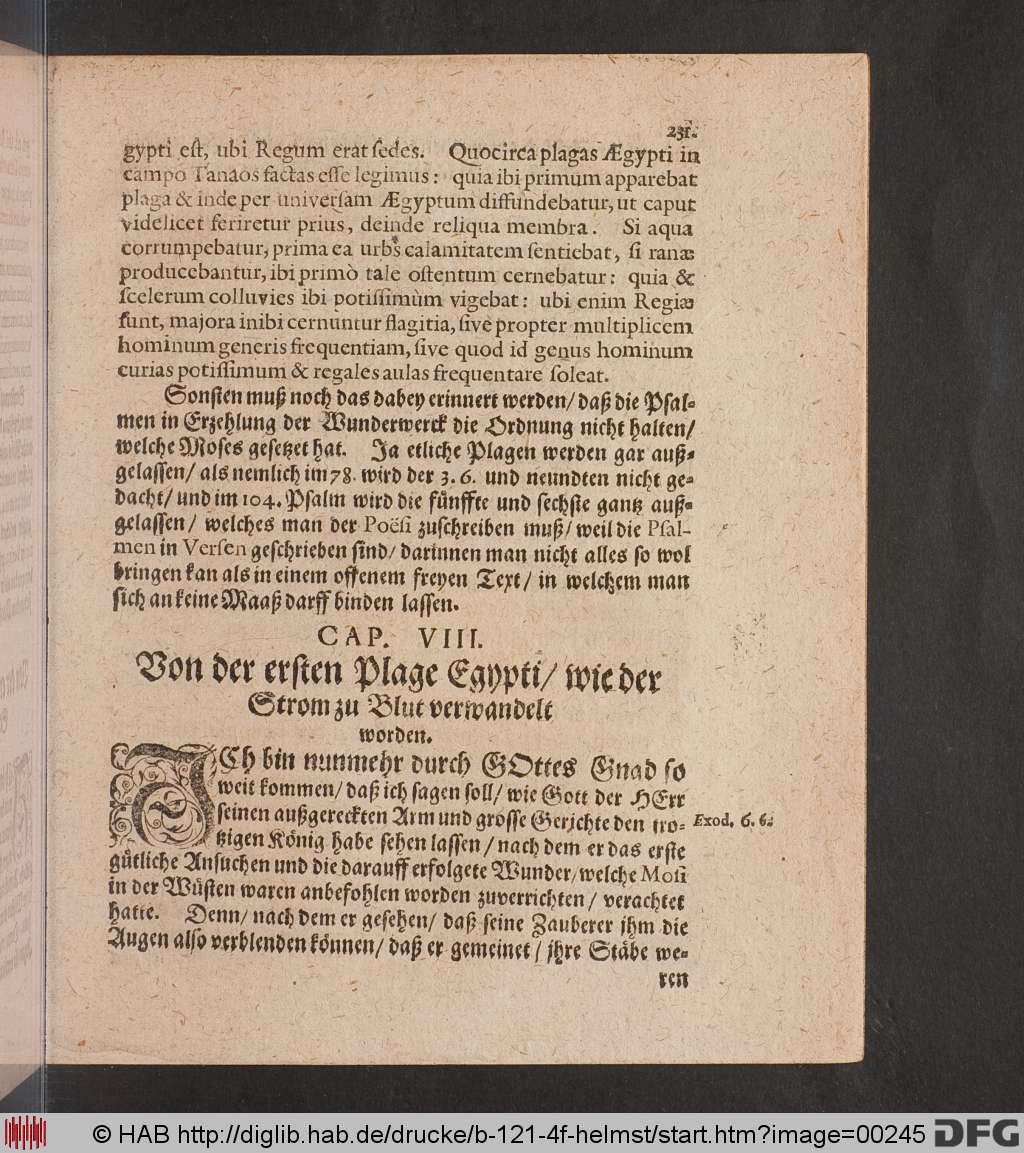 231.
gypti eſt, ubi Regum erat ſedes. Quocirca plagas Ægypti in
campo Tanaos factas eſſe legimus: quia ibi primum apparebat
plaga & inde per univerſam Ægyptum diffundebatur, ut caput
videlicet feriretur prius, deinde reliqua membra. Si aqua
corrumpebatur, prima ea urbs calamitatem ſentiebat, ſi ranæ
producebantur, ibi primò tale oſtentum cernebatur: quia &
ſcelerum colluvies ibi potiſſimùm vigebat: ubi enim Regiæ
ſunt, majora inibi cernuntur flagitia, ſive propter multiplicem
hominum generis frequentiam, ſive quod id genus hominum
curias potiſſimum & regales aulas frequentare ſoleat.
Sonſten muß noch das dabey erinnert werden/ daß die Pſal-
men in Erzehlung der Wunderwerck die Ordnung nicht halten/
welche Moſes geſetzet hat. Ja etliche Plagen werden gar auß-
gelaſſen/ als nemlich im 78. wird der 3. 6. und neundten nicht ge-
dacht/ und im 104. Pſalm wird die fünffte und ſechſte gantz auß-
gelaſſen/ welches man der Poëſi zuſchreiben muß/ weil die Pſal-
men in Verſen geſchrieben ſind/ darinnen man nicht alles ſo wol
bringen kan als in einem offenem freyen Text/ in welchem man
ſich an keine Maaß darff binden laſſen.
CAP. VIII.
Von der erſten Plage Egypti/ wie der
Strom zu Blut verwandelt
worden.
ICh bin nunmehr durch GOttes Gnad ſo
weit kommen/ daß ich ſagen ſoll/ wie Gott der HErr
ſeinen außgereckten Arm und groſſe Gerichte den tro- Exod. 6. 6.
tzigen König habe ſehen laſſen/ nach dem er das erſte
gütliche Anſuchen und die darauff erfolgete Wunder/ welche Moſi
in der Wüſten waren anbefohlen worden zuverrichten/ verachtet
hatte. Denn/ nach dem er geſehen/ daß ſeine Zauberer jhm die
Augen alſo verblenden können/ daß er gemeinet/ jhre Stäbe we-
ren
© HAB http://diglib.hab.de/drucke/b-121-4f-helmst/start.htm?image=00245 DFG